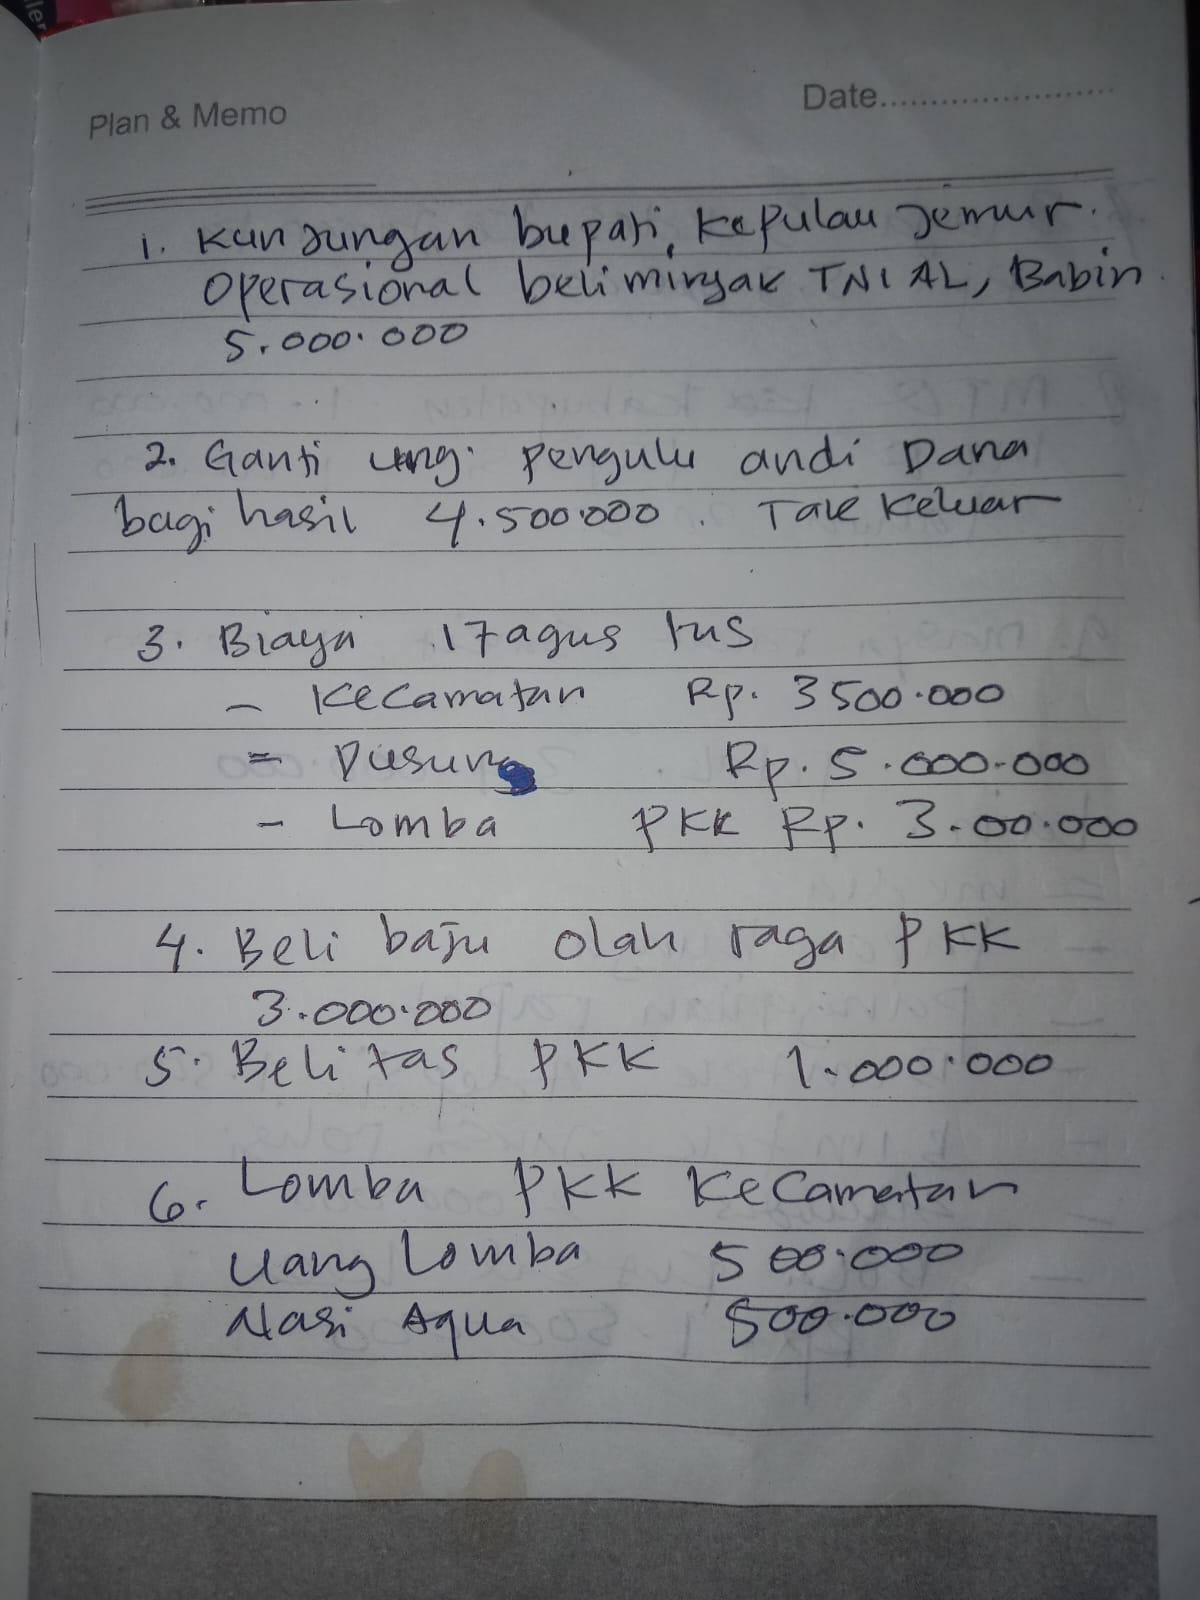 Plan & Memo
Date
1. Kunjungan bupati, Kepulau Jemur.
Operasional beli minyak TNI AL, Babin
5.000.000
2. Ganti uang pengulu andi Dana
bagi hasil 4.500.000. Tak Keluar
3. Biaya 17 agus tus
- Kecamatan Rp. 3500.000
= Dusun Rp. 5.000.000
- Lomba PKK Rp. 3.00.000
4. Beli baju olah raga PKK
3.000.000
5. Beli tas PKK 1.000.000
6. Lomba PKK Kecamatan
Uang Lomba 500.000
Nasi Aqua 500.000